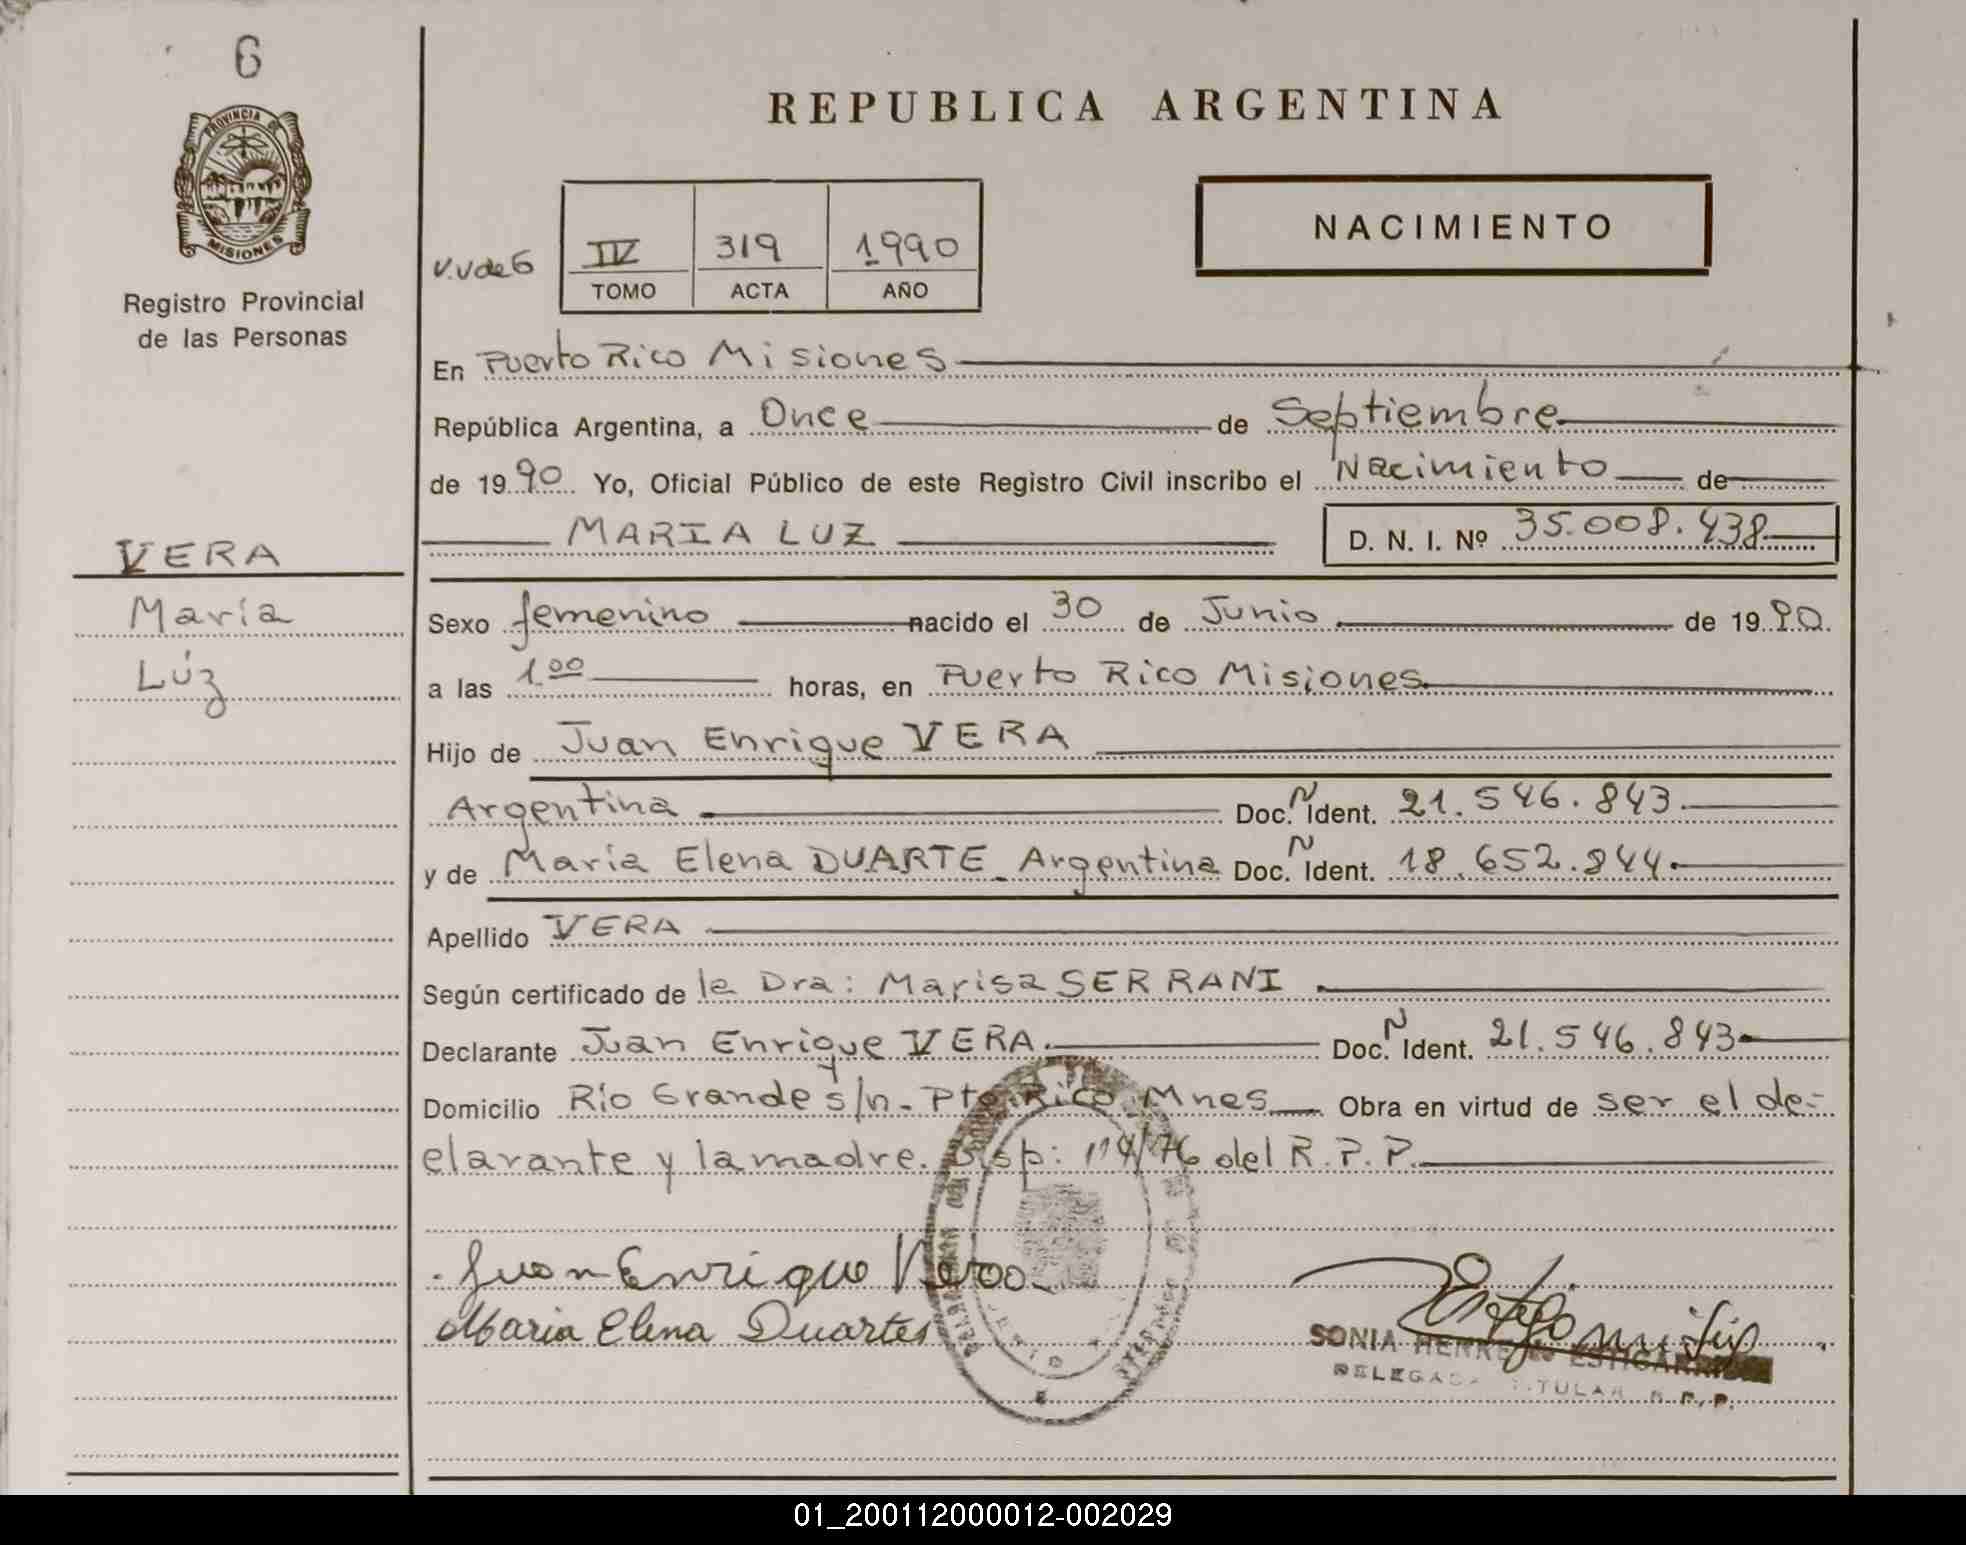 6
PROVINCIA DE
MISIONES
Registro Provincial
de las Personas
REPUBLICA ARGENTINA
NACIMIENTO
V.V de 6
IV 319 1990
TOMO ACTA AÑO
En Puerto Rico Misiones
República Argentina, a Once de Septiembre
de 1990 Yo, Oficial Público de este Registro Civil inscribo el Nacimiento de
MARIA LUZ D. N. I. Nº 35.008.438
VERA
María
Lúz
Sexo femenino nacido el 30 de Junio de 1990
a las 1.00 horas, en Puerto Rico Misiones
Hijo de Juan Enrique VERA
Argentina Doc. N Ident. 21.546.843
y de Maria Elena DUARTE - Argentina Doc. N Ident. 18.652.844.
Apellido VERA
Según certificado de la Dra: Marisa SERRANI
Declarante Juan Enrique VERA. Doc. N Ident. 21.546.843
Domicilio Río Grande s/n - Pto. Rico Mnes Obra en virtud de ser el de-
clarante y la madre. Disp: 114/76 del R.P.P.
Juan Enrique Vera
Maria Elena Duartes
SONIA ESTIGARRIBIA
DELEGADA TITULAR R.P.P.
01_200112000012-002029